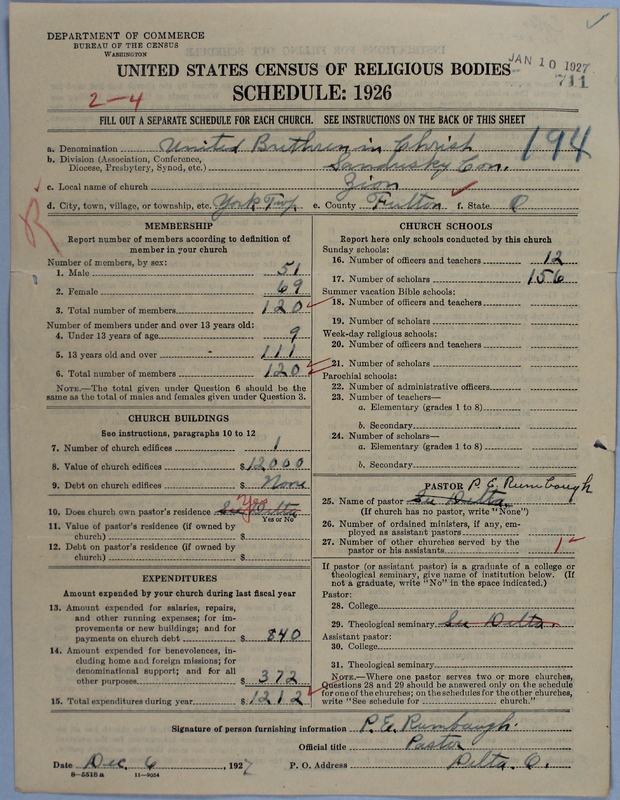 DEPARTMENT OF COMMERCE
BUREAU OF THE CENSUS
WASHINGTON
JAN 10 1927
711
UNITED STATES CENSUS OF RELIGIOUS BODIES
2-4
SCHEDULE: 1926
FILL OUT A SEPARATE SCHEDULE FOR EACH CHURCH. SEE INSTRUCTIONS ON THE BACK OF THIS SHEET
194
a. Denomination United Brethren in Christ
b. Division (Association, Conference,
Diocese, Presbytery, Synod, etc.) Sandusky Con.
c. Local name of church Zion
d. City, town, village, or township, etc. York Twp e. County Fulton f. State O
R
MEMBERSHIP
Report number of members according to definition of
member in your church
Number of members, by sex:
1. Male 51
2. Female 69
3. Total number of members 120
Number of members under and over 13 years old:
4. Under 13 years of age 9
5. 13 years old and over 111
6. Total number of members 120
NOTE.—The total given under Question 6 should be the
same as the total of males and females given under Question 3.
CHURCH BUILDINGS
See instructions, paragraphs 10 to 12
7. Number of church edifices 1
8. Value of church edifices $12000
9. Debt on church edifices $None
Yes
10. Does church own pastor's residence See Delta
Yes or No
11. Value of pastor's residence (if owned by
church) $
12. Debt on pastor's residence (if owned by
church) $
EXPENDITURES
Amount expended by your church during last fiscal year
13. Amount expended for salaries, repairs,
and other running expenses; for im-
provements or new buildings; and for
payments on church debt $840
14. Amount expended for benevolences, in-
cluding home and foreign missions; for
denominational support; and for all
other purposes $372
15. Total expenditures during year $1212
CHURCH SCHOOLS
Report here only schools conducted by this church
Sunday schools:
16. Number of officers and teachers 12
17. Number of scholars 156
Summer vacation Bible schools:
18. Number of officers and teachers
19. Number of scholars
Week-day religious schools:
20. Number of officers and teachers
21. Number of scholars
Parochial schools:
22. Number of administrative officers
23. Number of teachers—
a. Elementary (grades 1 to 8)
b. Secondary
24. Number of scholars—
a. Elementary (grades 1 to 8)
b. Secondary
PASTOR P. E. Rumbaugh
25. Name of pastor See Delta
(If church has no pastor, write "None")
26. Number of ordained ministers, if any, em-
ployed as assistant pastors
27. Number of other churches served by the
pastor or his assistants 1
If pastor (or assistant pastor) is a graduate of a college or
theological seminary, give name of institution below. (If
not a graduate, write "No" in the space indicated.)
Pastor:
28. College
29. Theological seminary See Delta
Assistant pastor:
30. College
31. Theological seminary
NOTE.—Where one pastor serves two or more churches,
Questions 28 and 29 should be answered only on the schedule
for one of the churches; on the schedules for the other churches,
write "See schedule for church."
Signature of person furnishing information P. E. Rumbaugh.
Official title Pastor
Date Dec. 6, 1927 P. O. Address Delta. O.
8-5518 a 11-9054